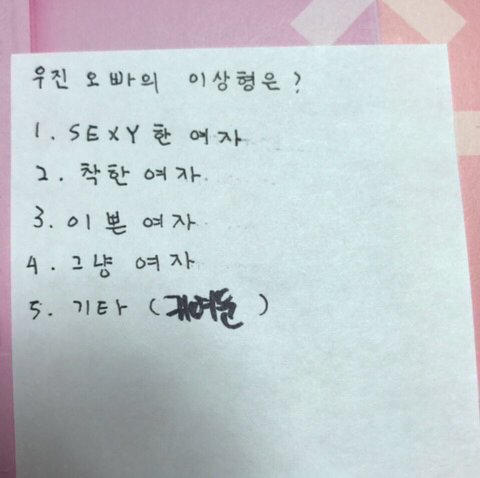 우진 오빠의 이상형은?
1. SEXY한 여자
2. 착한 여자
3. 이쁜 여자
4. 그냥 여자
5. 기타 ( )